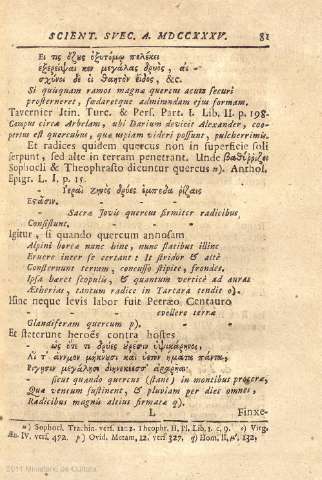 SCIENT. SVEC. A. MDCCXXXV. 81
Εἰ τις ὄζους ὀξυτόμῳ πελέκει
ἐξερείψαι κεν μεγάλας δρυὸς, αἰ-
σχύνοι δέ οἱ θαητὸν εἶδος, &c.
Si quisquam ramos magnæ quercus acuta securi
prosterneret, fœdaretque admirandam ejus formam.
Tavernier Itin. Turc. & Pers. Part. I. Lib. II. p. 198.
Campus circa Arbelam, ubi Darium devicit Alexander, coo-
pertus est quercubus, quæ uspiam videri possunt, pulcherrimis.
Et radices quidem quercus non in superficie soli
serpunt, sed alte in terram penetrant. Unde βαθύῤῥιζοι
Sophocli & Theophrasto dicuntur quercus n). Anthol.
Epigr. L. I, p. 15.
Ἱεραὶ Ζηνὸς δρύες ἔμπεδα ῥίζαις
Ἑστᾶσιν.
Sacræ Jovis quercus firmiter radicibus
Consistunt.
Igitur, si quando quercum annosam
Alpini boreæ nunc hinc, nunc flatibus illinc
Eruere inter se certant: It stridor & altè
Consternunt terram, concusso stipite, frondes.
Ipsa hæret scopulis, & quantum vertice ad auras
Ætherias, tantum radice in Tartara tendit o).
Hinc neque levis labor fuit Petræo Centauro
evellere terrâ
Glandiferam quercum p).
Et steterunt heroës contra hostes
ὡς ὅτι τε δρύες οὔρεσιν ὑψικάρηνοι,
Αἵ τ' ἄνεμον μίμνουσι καὶ ὑετὸν ἤματα πάντα,
ῥίζησιν μεγάλησι διηνεκέεσσ' ἀραρυῖαι:
sicut quando quercus (stant) in montibus proceræ,
Quæ ventum sustinent, & pluviam per dies omnes,
Radicibus magnis altius firmatæ q).
L Finxe-
n) Sophocl. Trachin. vers. 1212. Theophr. H. Pl. Lib. 1. c. 9. o) Virg.
Æn. IV. vers. 472. p) Ovid. Metam. 12. vers 327, q) Hom. Il, μ', 132,
2011 Ministerio de Cultura